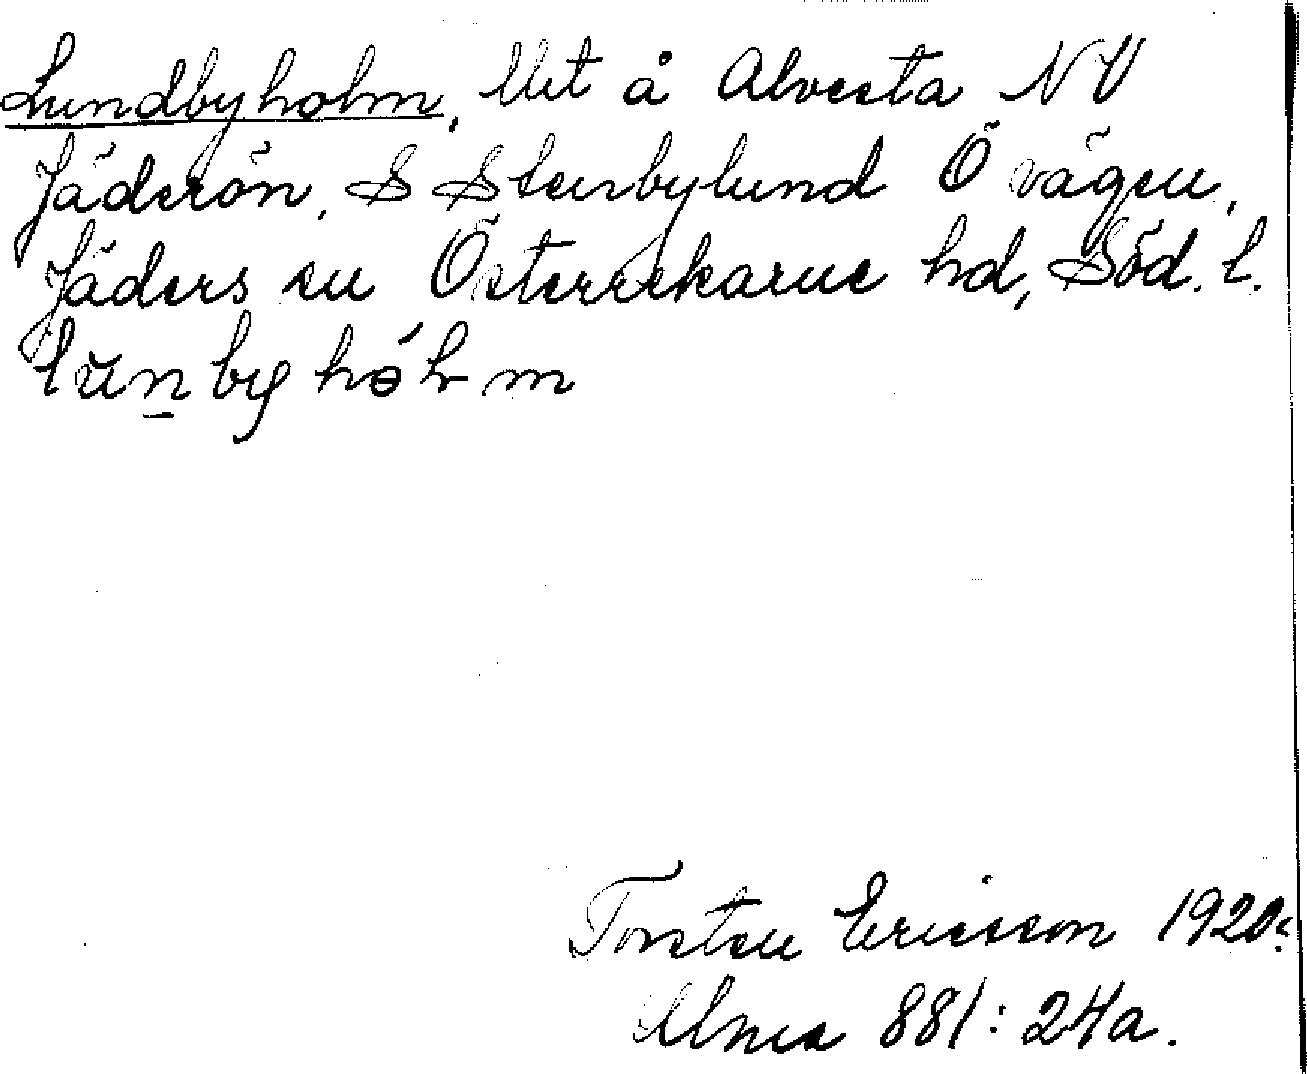 Lundbyholm. Utt å Alvesta NV
Jäderön, S Stensbylund Ö vägen,
Jäders sn Österrekarne hd, Söd. l.
lŭn by hó m
Torsten Ericsson 1920.
Ulma 881:24a.